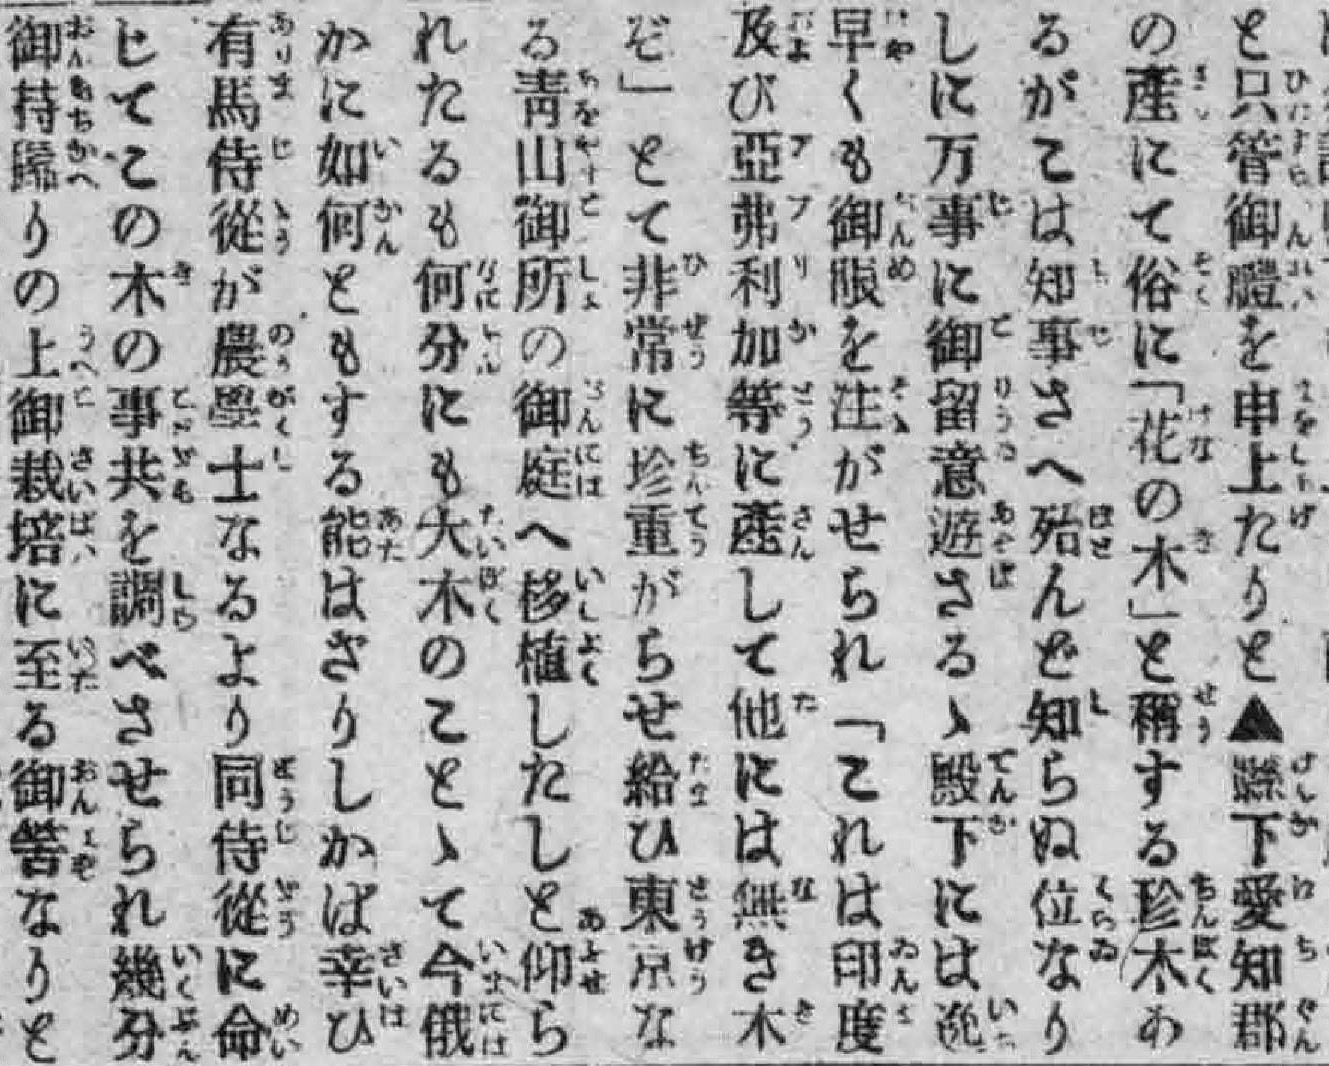 と只管御禮を申上たりと▲縣下愛知郡
の產にて俗に「花の木」と稱する珍木あ
るがこは知事さへ殆んど知らぬ位なり
しに万事に御留意遊さるゝ殿下には逸
早くも御眼を注がせられ「これは印度
及び亞弗利加等に產して他には無き木
ぞ」とて非常に珍重がらせ給ひ東京な
る靑山御所の御庭へ移植したしと仰ら
れたるも何分にも大木のことゝて今俄
かに如何ともする能はざりしかば幸ひ
有馬侍從が農學士なるより同侍從に命
じてこの木の事共を調べさせられ幾分
御持歸りの上御栽培に至る御筈なりと